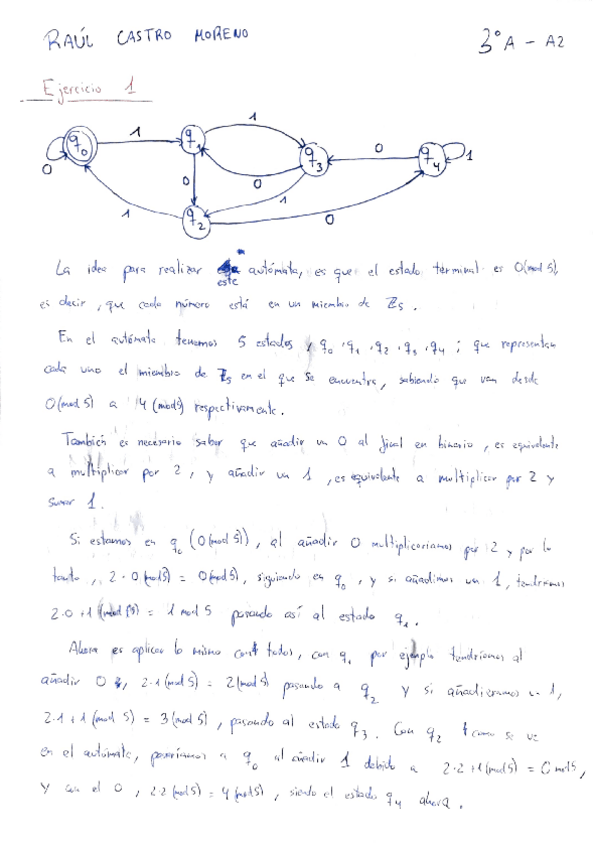 RAÚL CASTRO MORENO 3ºA - A2
Ejercicio 1
1 1 0 1
q0 q1 q3 q4
0 0 0 1
1 q2 0
La idea para realizar este autómata, es que el estado terminal es 0(mod 5),
es decir, que cada número está en un miembro de Z5.
En el autómata tenemos 5 estados, q0, q1, q2, q3, q4; que representan
cada uno el miembro de Z5 en el que se encuentra, sabiendo que van desde
0(mod 5) a 4(mod 5) respectivamente.
También es necesario saber que añadir un 0 al final en binario, es equivalente
a multiplicar por 2, y añadir un 1, es equivalente a multiplicar por 2 y
sumar 1.
Si estamos en q0 (0(mod 5)), al añadir 0 multiplicaríamos por 2 y por lo
tanto, 2·0(mod 5) = 0(mod 5), siguiendo en q0, y si añadimos un 1, tendremos
2·0+1 (mod 5) = 1 mod 5 pasando así al estado q1.
Ahora es aplicar lo mismo con todos, con q1 por ejemplo tendríamos al
añadir 0, 2·1(mod 5) = 2(mod 5) pasando a q2 y si añadieramos un 1,
2·1+1(mod 5) = 3(mod 5), pasando al estado q3. Con q2 como se ve
en el autómata, pasaríamos a q0 al añadir 1 debido a 2·2+1(mod 5) = 0 mod 5,
y con el 0, 2·2(mod 5) = 4(mod 5), siendo el estado q4 ahora.